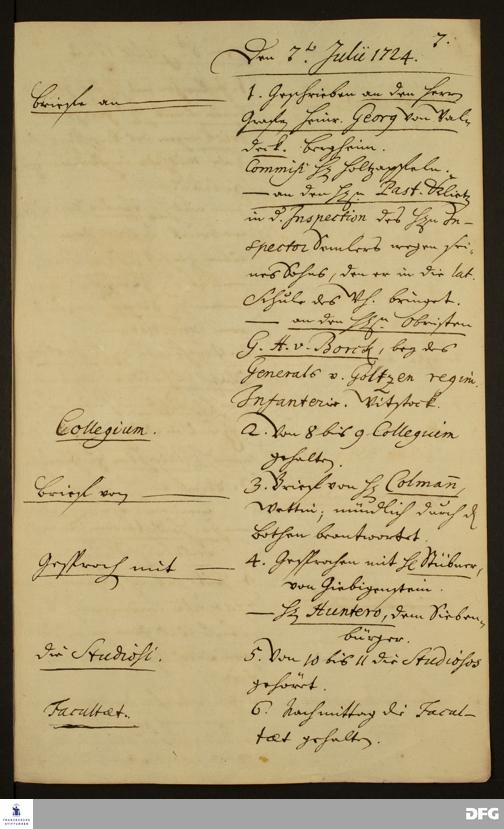 7.
Den 7.t Julii 1724.
Briefe an
1. Geschrieben an den Herrn
Grafen Heinr. Georg von Wal-
deck. Bergheim.
Commiss. H. Holtzapffeln.
— an den Hn. Past.
in d. Inspection des Hn In-
spector Semlers wegen sei-
nes Sohns, den er in die lat.
Schule des Wh. bringet.
— an den Hn. Obristen
G. H. v. Borck, bey des
Generals v. Goltzen regim.
Infanterie. Witstock.
Collegium.
2. Von 8 bis 9 Collegium
gehalten.
Brief von
3. Brief von H Colman̄,
Wettin; mündlich durch d
Bothen beantwortet.
Gesproch mit
4. Gesprochen mit H Stübner,
von Giebigenstein.
— H Huntero, dem Sieben-
bürger.
die Studiosi.
5. Von 10 bis 11 die Studiosos
gehöret.
Facultæt.
6. Nachmittag die Facul-
tæt gehalten.
FRANCKESCHE
STIFTUNGEN
DFG